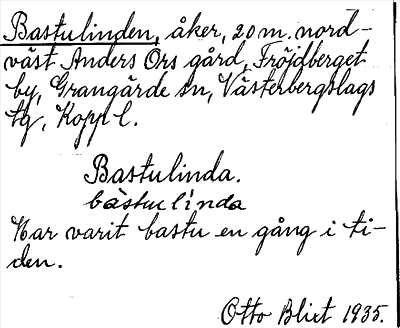 Bastulinden, åker, 20 m. nord-
väst Anders Ors gård, Fröjdberget
by, Grangärde sn, Västerbergslags
tg, Koppl.
Bastulinda.
bàstulinda
Har varit bastu en gång i ti-
den.
Otto Blixt 1935.